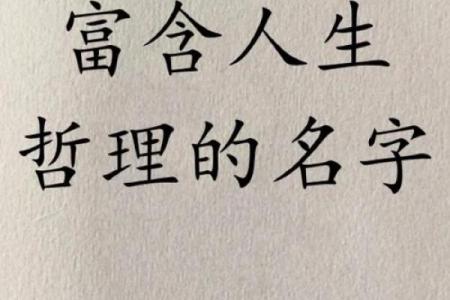 富含人生
哲理的名字